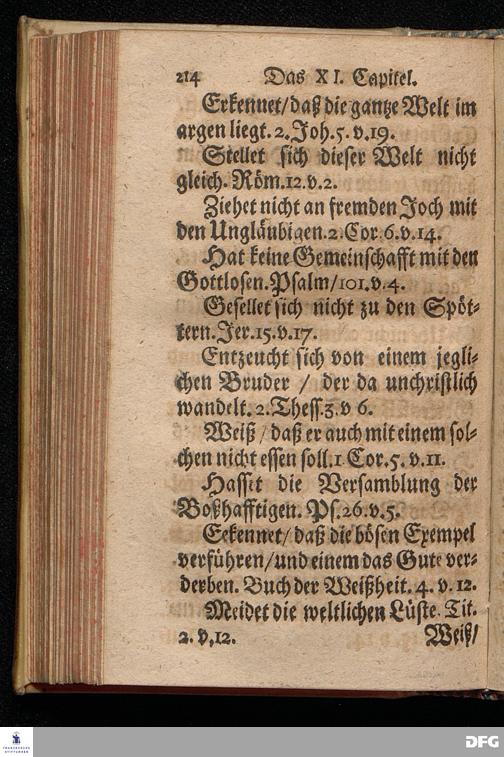 214 Das XI. Capitel.
Erkennet/daß die gantze Welt im
argen liegt. 2. Joh. 5. v. 19.
Stellet sich dieser Welt nicht
gleich. Röm. 12. v. 2.
Ziehet nicht an fremden Joch mit
den Ungläubigen. 2. Cor. 6. v. 14.
Hat keine Gemeinschafft mit den
Gottlosen. Psalm/101. v. 4.
Gesellet sich nicht zu den Spöt-
tern. Jer. 15. v. 17.
Entzeucht sich von einem jegli-
chen Bruder / der da unchristlich
wandelt. 2. Thess. 3. v 6.
Weiß / daß er auch mit einem sol-
chen nicht essen soll. 1 Cor. 5. v. 11.
Hasset die Versamblung der
Boßhafftigen. Ps. 26. v. 5.
Eekennet/ daß die bösen Exempel
verführen/und einem das Gute ver-
derben. Buch der Weißheit. 4. v. 12.
Meidet die weltlichen Lüste. Tit.
2. v, 12. Weiß/
FRANCKESCHE
STIFTUNGEN
DFG